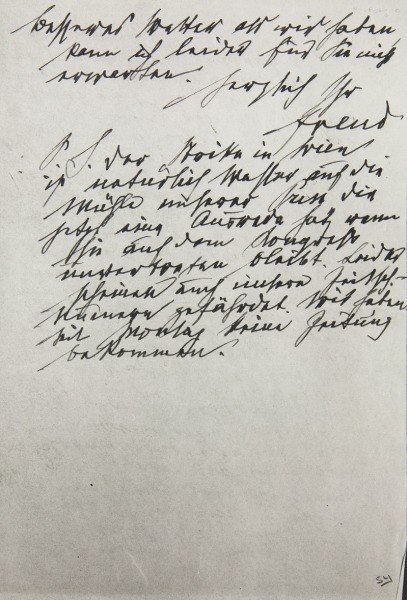 besseres Wetter als wir haben
kann ich leider für Sie nicht
erwarten.
Herzlich Ihr
Freud
P.S. der Streik in Wien
ist natürlich Wasser auf die
Mühle unserer die
jetzt eine Ausrede hat wenn
sie auf dem Kongress
unvertreten bleibt. Leider
scheinen auch unsere Zeitsch.
Nummern gefährdet. Wir haben
seit Montag keine Zeitung
bekommen.